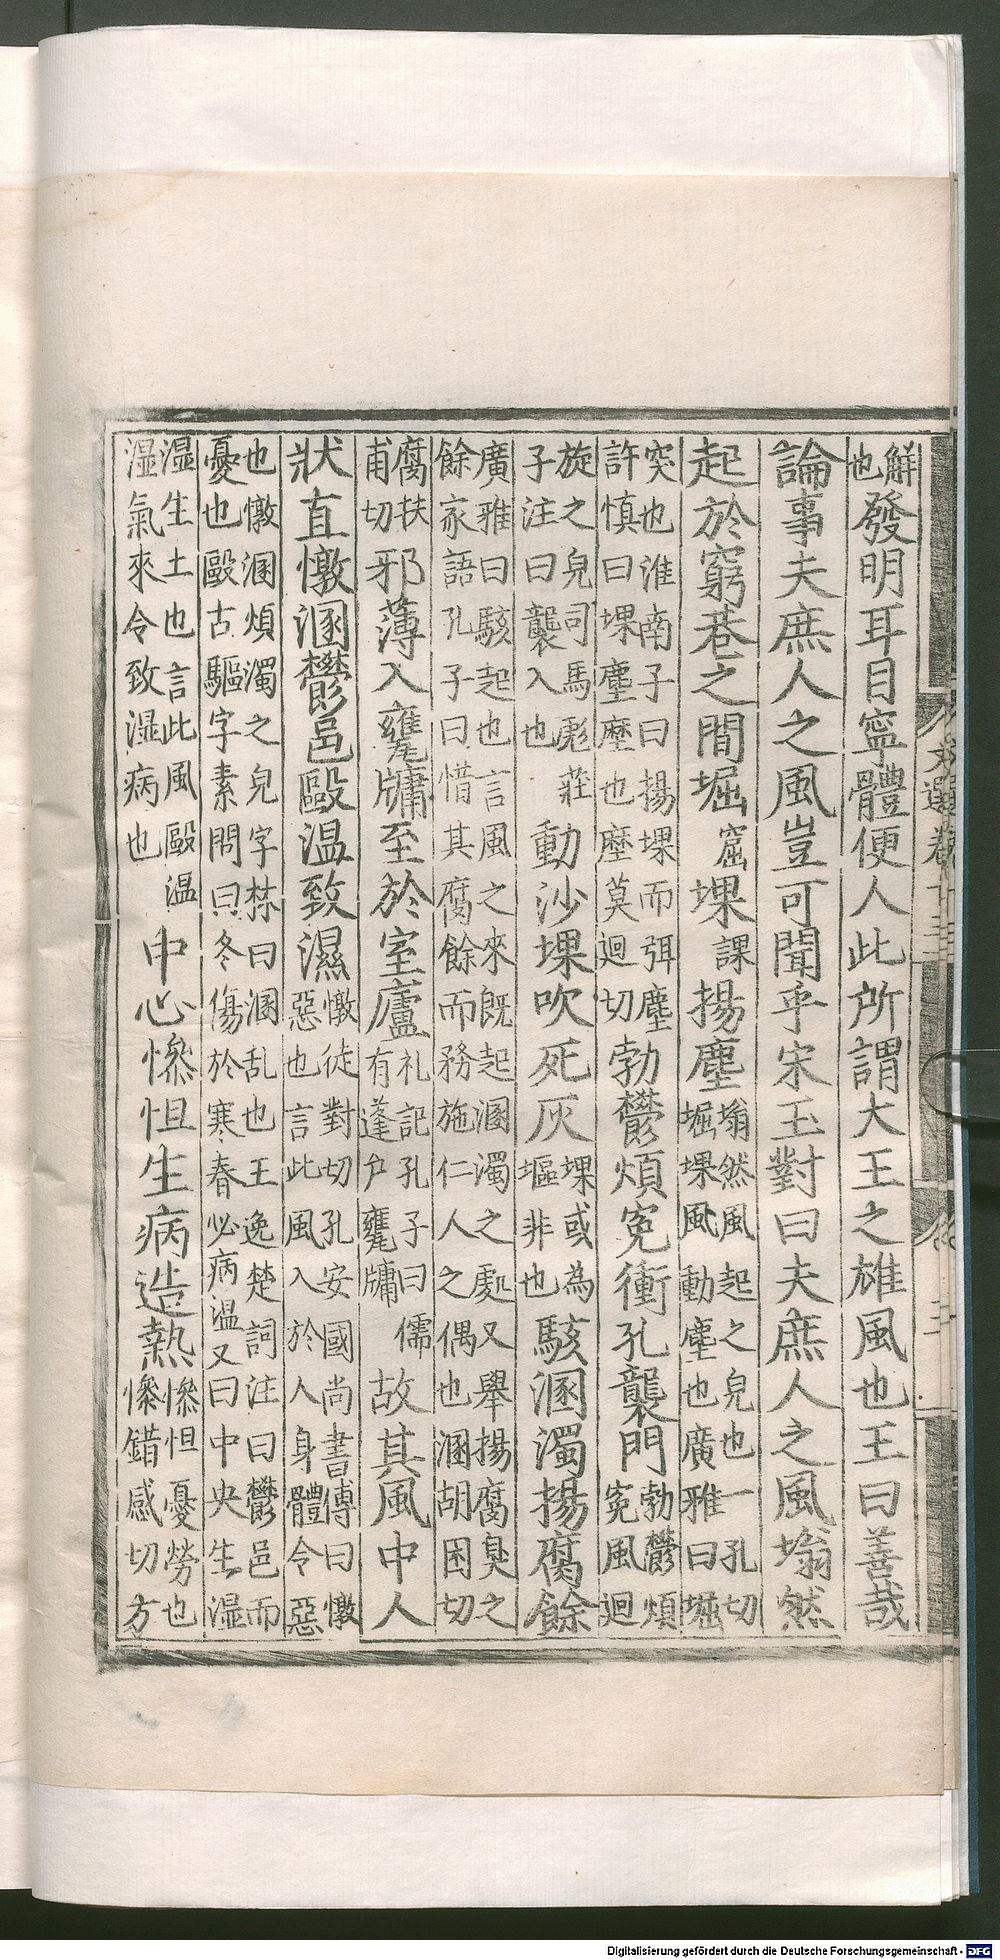 解也發明耳目寧體便人此所謂大王之雄風也王曰善哉
論事夫庶人之風豈可聞乎宋玉對曰夫庶人之風塕然
起於窮巷之間堀窟堁課揚塵塕然風起之皃也一孔切堀堁風動塵也廣雅曰堀
突也淮南子曰揚堁而弭塵許慎曰堁塵塺也塺莫迴切勃鬱煩冤衝孔襲門勃鬱煩冤風迴
旋之皃司馬彪莊子注曰襲入也動沙堁吹死灰堁或為塸非也駭溷濁揚腐餘
廣雅曰駭起也言風之來既起溷濁之處又舉揚腐臭之餘家語孔子曰惜其腐餘而務施仁人之偶也溷胡困切
腐扶甫切邪薄入甕牖至於室廬礼記孔子曰儒有蓬户甕牖故其風中人
狀直憞溷鬱邑毆温致濕憞徒對切孔安國尚書傅曰憞惡也言此風入於人身體令惡
也憞溷煩濁之皃字林曰溷乱也王逸楚詞注曰鬱邑而憂也毆古驅字素問曰冬傷於寒春必病温又曰中央生湿
湿生土也言此風毆温湿氣來令致湿病也中心慘怛生病造熱慘怛憂勞也慘錯感切方
文選卷十三
三
Digitalisierung gefördert durch die Deutsche Forschungsgemeinschaft - DFG